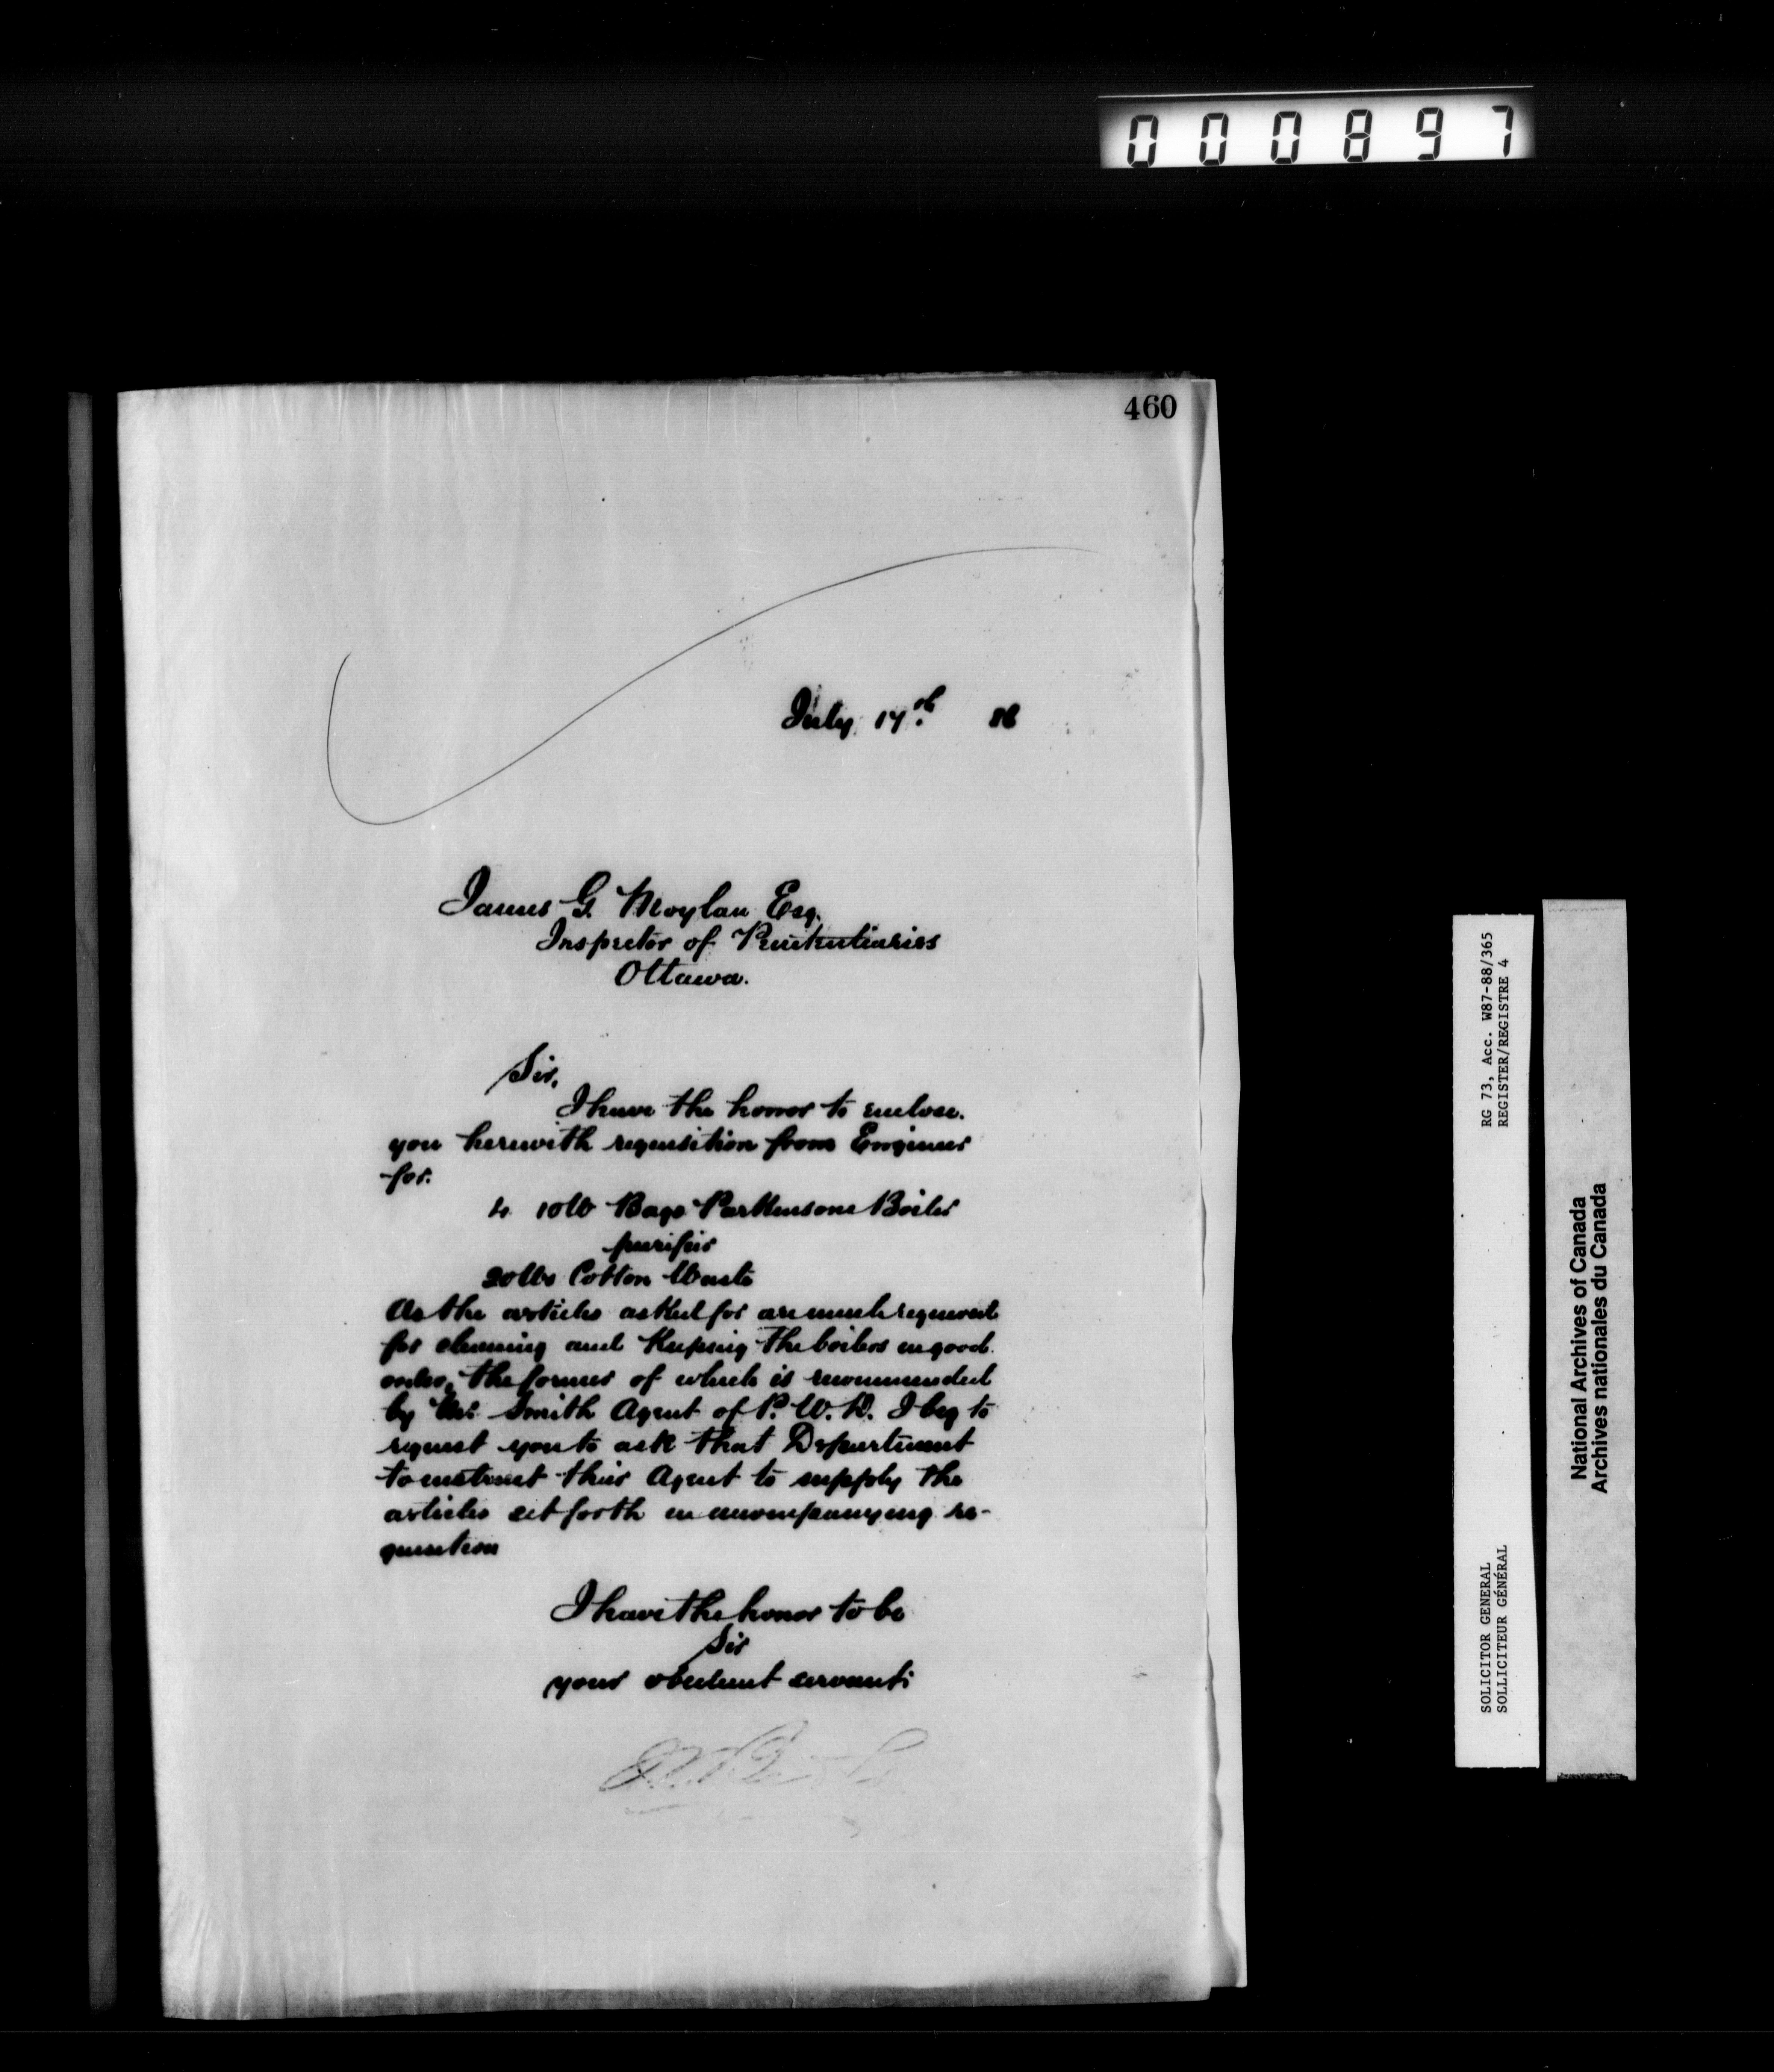 000897
460
July 17th 86
James G. Moylan Esq.
Inspector of Penitentiaries
Ottawa.
Sir,
I have the honor to enclose
you herewith requisition from Engineer
for.
4 10lb Bags Parkinsons Boiler
purifier
20lbs Cotton Waste
As the articles asked for are much required
for cleaning and keeping the boilers in good
order, the former of which is recommended
by Mr. Smith Agent of P. W. D. I beg to
request you to ask that Department
to instruct their Agent to supply the
articles set forth in accompanying re-
quisition
I have the honor to be
Sir
your obedient servant
RG 73, Acc. W87-88/365
REGISTER/REGISTRE 4
SOLICITOR GENERAL
SOLLICITEUR GÉNÉRAL
National Archives of Canada
Archives nationales du Canada